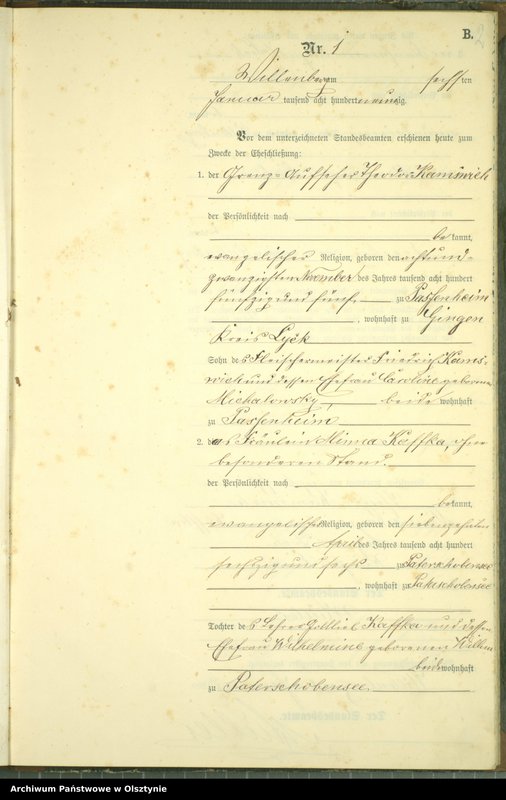 B.
Nr. 1
Willenberg am sechsten
Januar tausend acht hundert neunzig.
Vor dem unterzeichneten Standesbeamten erschienen heute zum
Zwecke der Eheschließung:
1. der Grenz=Aufseher Theodor Kamswich
der Persönlichkeit nach
bekannt,
evangelischer Religion, geboren den achtund-
zwanzigsten November des Jahres tausend acht hundert
fünfzig und fünf zu Passenheim
, wohnhaft zu Gingen
Kreis Lyck
Sohn des Fleischermeister Friedrich Kams-
wich und dessen Ehefrau Caroline geborene
Michalowsky, beide wohnhaft
zu Passenheim
2. das Fräulein Minna Kaffka, ohne
besonderen Stand.
der Persönlichkeit nach
bekannt,
evangelischer Religion, geboren den siebenzehnten
April des Jahres tausend acht hundert
sechzig und sechs zu Paterschobensee
, wohnhaft zu Paterschobensee
Tochter des Lehrer Gottlieb Kaffka und dessen
Ehefrau Wilhelmine geborenen
beide wohnhaft
zu Paterschobensee.
Der Standesbeamte.
Archiwum Państwowe w Olsztynie